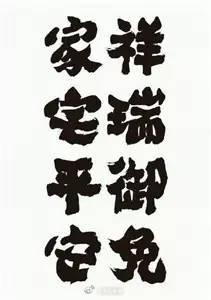 祥瑞御免
家宅平安